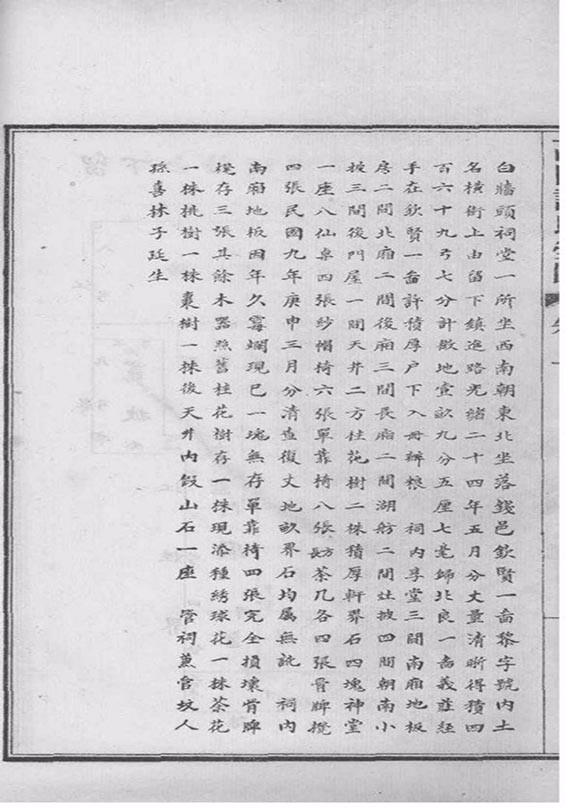 白牆頭祠堂一所坐西南朝東北坐落錢邑欽賢一啚黎字號內土
名橫街上由留下鎮進路光緒二十四年五月分丈量清晰得積四
百六十九弓七分計散地壹畝九分五厘七毫歸北良一啚義莊經
手在欽賢一啚許積厚戶下入冊辦粮 祠內享堂三間南廂地板
房二間北廂二間後廂三間長廂二間湖舫二間灶披四間朝南小
披三間後門屋一間天井二方桂花樹二株積厚軒界石四塊神堂
一座八仙桌四張紗帽椅六張單靠椅八張舫茶几各四張骨牌櫈
四張民國九年庚申三月分清查復丈地畝界石均屬無訛 祠內
南廂地板因年久霉爛現已一塊無存單靠椅四張完全損壞骨牌
櫈存三張其餘木器照舊桂花樹存一株現添種綉球花一株茶花
一株桃樹一株棗樹一株後天井內假山石一座 管祠蕙官坟人
孫喜林子廷生